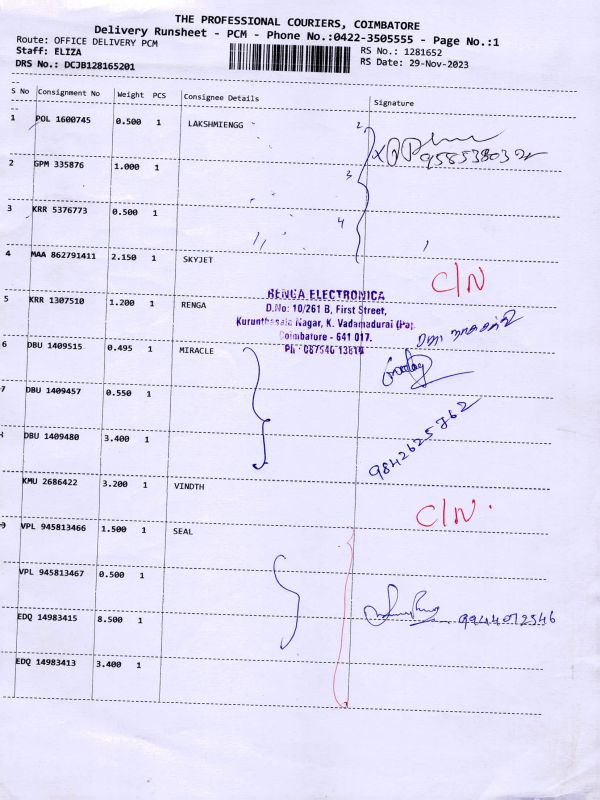 THE PROFESSIONAL COURIERS, COIMBATORE
Delivery Runsheet - PCM - Phone No.:0422-3505555 - Page No.:1
Route: OFFICE DELIVERY PCM
RS No.: 1281652
Staff: ELIZA
RS Date: 29-Nov-2023
DRS No.: DCJB128165201
S No Consignment No Weight PCS Consignee Details Signature
1 POL 1600745 0.500 1 LAKSHMIENGG
2
2 GPM 335876 1.000 1
3
3 KRR 5376773 0.500 1
4
4 MAA 862791411 2.150 1 SKYJET C/N
5 KRR 1307510 1.200 1 RENGA
RENGA ELECTRONICA
D.No: 10/261 B, First Street,
Kurunthasala Nagar, K. Vadamadurai (Po),
Coimbatore - 641 017.
6 DBU 1409515 0.495 1 MIRACLE
7 DBU 1409457 0.550 1
DBU 1409480 3.400 1 9842625762
KMU 2686422 3.200 1 VINDTH C/N.
VPL 945813466 1.500 1 SEAL
VPL 945813467 0.500 1
EDQ 14983415 8.500 1 9944072546
EDQ 14983413 3.400 1